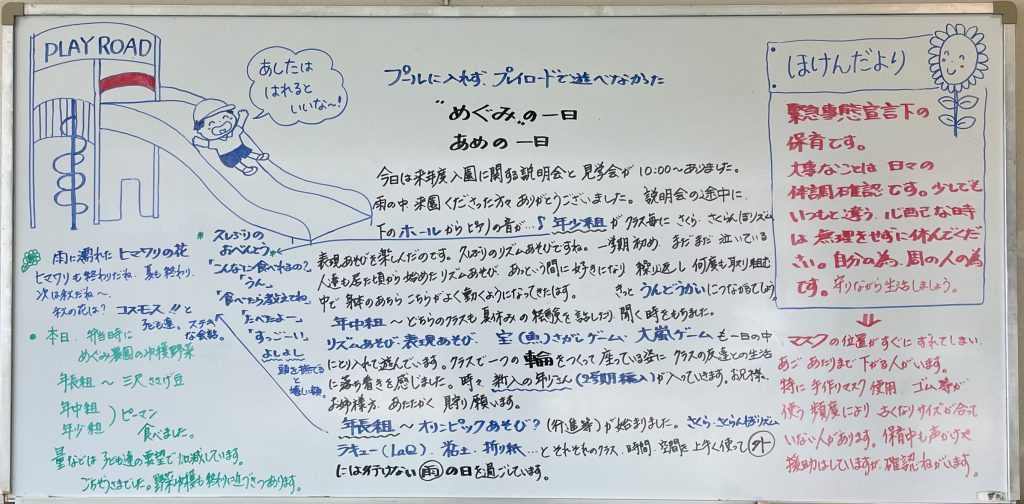 PLAY ROAD
あしたは
はれると
いいな〜!
プールに入れず、プレイロードで遊べなかった
"めぐみ"の一日
あめの一日
今日は来年度入園に関する説明会と見学会が10:00〜ありました。
雨の中、来園くださった方々ありがとうございました。説明会の途中に、
下のホールからピアノの音が…♪ 年少組がクラス毎にさくら・さくらんぼリズム
表現あそびを楽しんだのです。久しぶりのリズムあそびですね。一学期初め、まだまだ泣いている
人達も居た頃から始めたリズムあそび、あっという間に好きになり繰り返し何度も取り組む
中で身体のあちらこちらがよく動くようになってきたはず。 きっとうんどうかいにつながるでしょう
年中組〜どちらのクラスも夏休みの経験を話したり、聞く時をもちました。
リズムあそび・表現あそび、宝(魚)さがしゲーム・大嵐ゲームも一日の中
にとり入れて遊んでいます。クラスで一つの輪をつくって座っている姿にクラスの友達との生活
に落ち着きを感じました。時々、新入の年少さん(2学期編入)が入っていきます。お兄様、
お姉様方、あたたかく見守り願います。
年長組〜オリンピックあそび?(行進等)が始まりました。さくら・さくらんぼリズム
ラキュー(LaQ)、粘土、折り紙…とそれぞれのクラス、時間、空間を上手く使って外
には行けない雨の日を過ごしています。
久しぶりの
おべんとう
「こんなに食べれるの?」
「うん」
「食べたら教えてね」
「たべたよー」
「すっごーい!」
よしよし
頭を撫でると嬉しい顔
雨に濡れたヒマワリの花
ヒマワリも終わりだね、夏も終わり、
次は秋だね〜、
秋の花は? コスモス!!と
子ども達。ステキな会話。
本日、弁当時に
めぐみ農園の収穫野菜
年長組〜三尺ささげ豆
年中組
年少組 )ピーマン
食べました。
量などは子ども達の要望で加減しています。
ごちそうさまでした。野菜収穫も終わりに近づきつつあります。
ほけんだより
緊急事態宣言下の
保育です。
大事なことは日々の
体調確認です。少しでも
いつもと違う、心配な時
は無理をせずに休んでくだ
さい。自分の為、周の人の為
です。守りながら生活しましょう。
マスクの位置がすぐにずれてしまい、
あごあたりまで下がる人がいます。
特に手作りマスク使用、ゴム等が
使う頻度により きつくなりサイズが合って
いない人があります。保育中も声かけや
援助はしていますが、確認ねがいます。